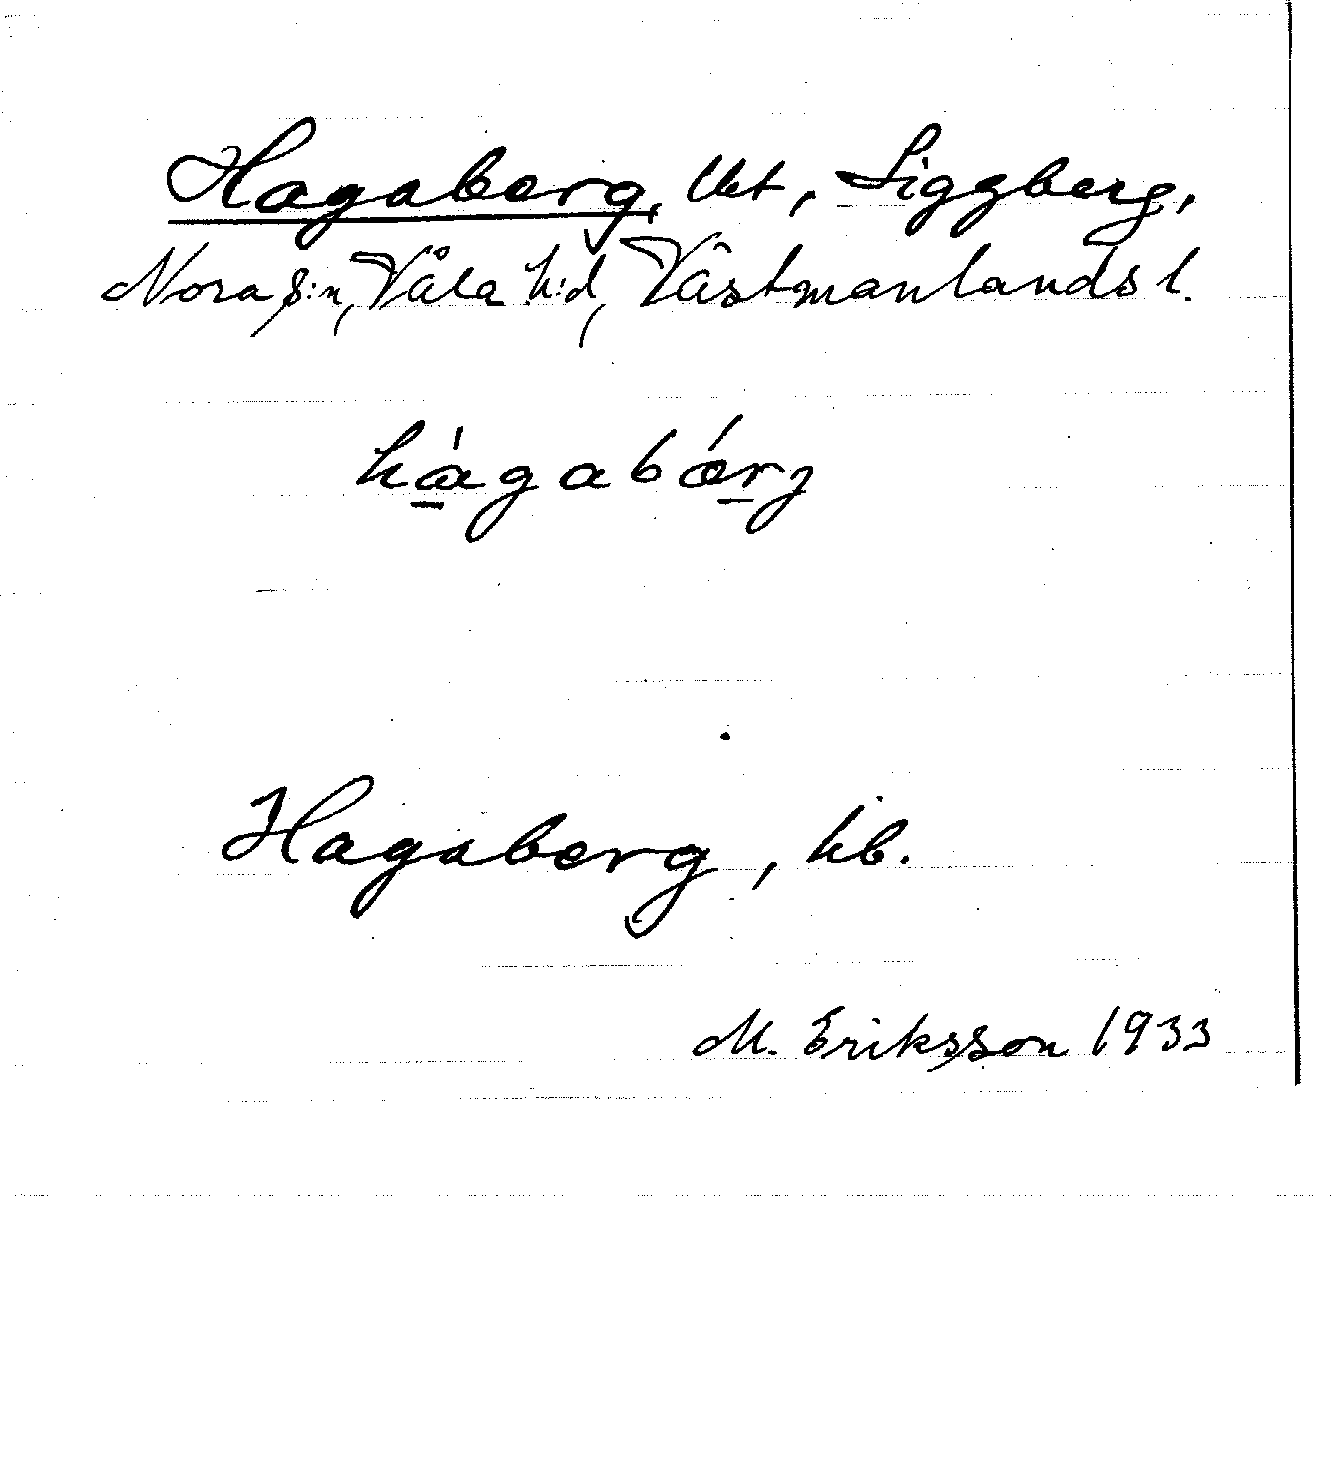 Hagaberg, lht, Siggberg,
Nora s:n, Våla h:d, Västmanlands l.
hágabærj
Hagaberg, hb.
M. Eriksson 1933